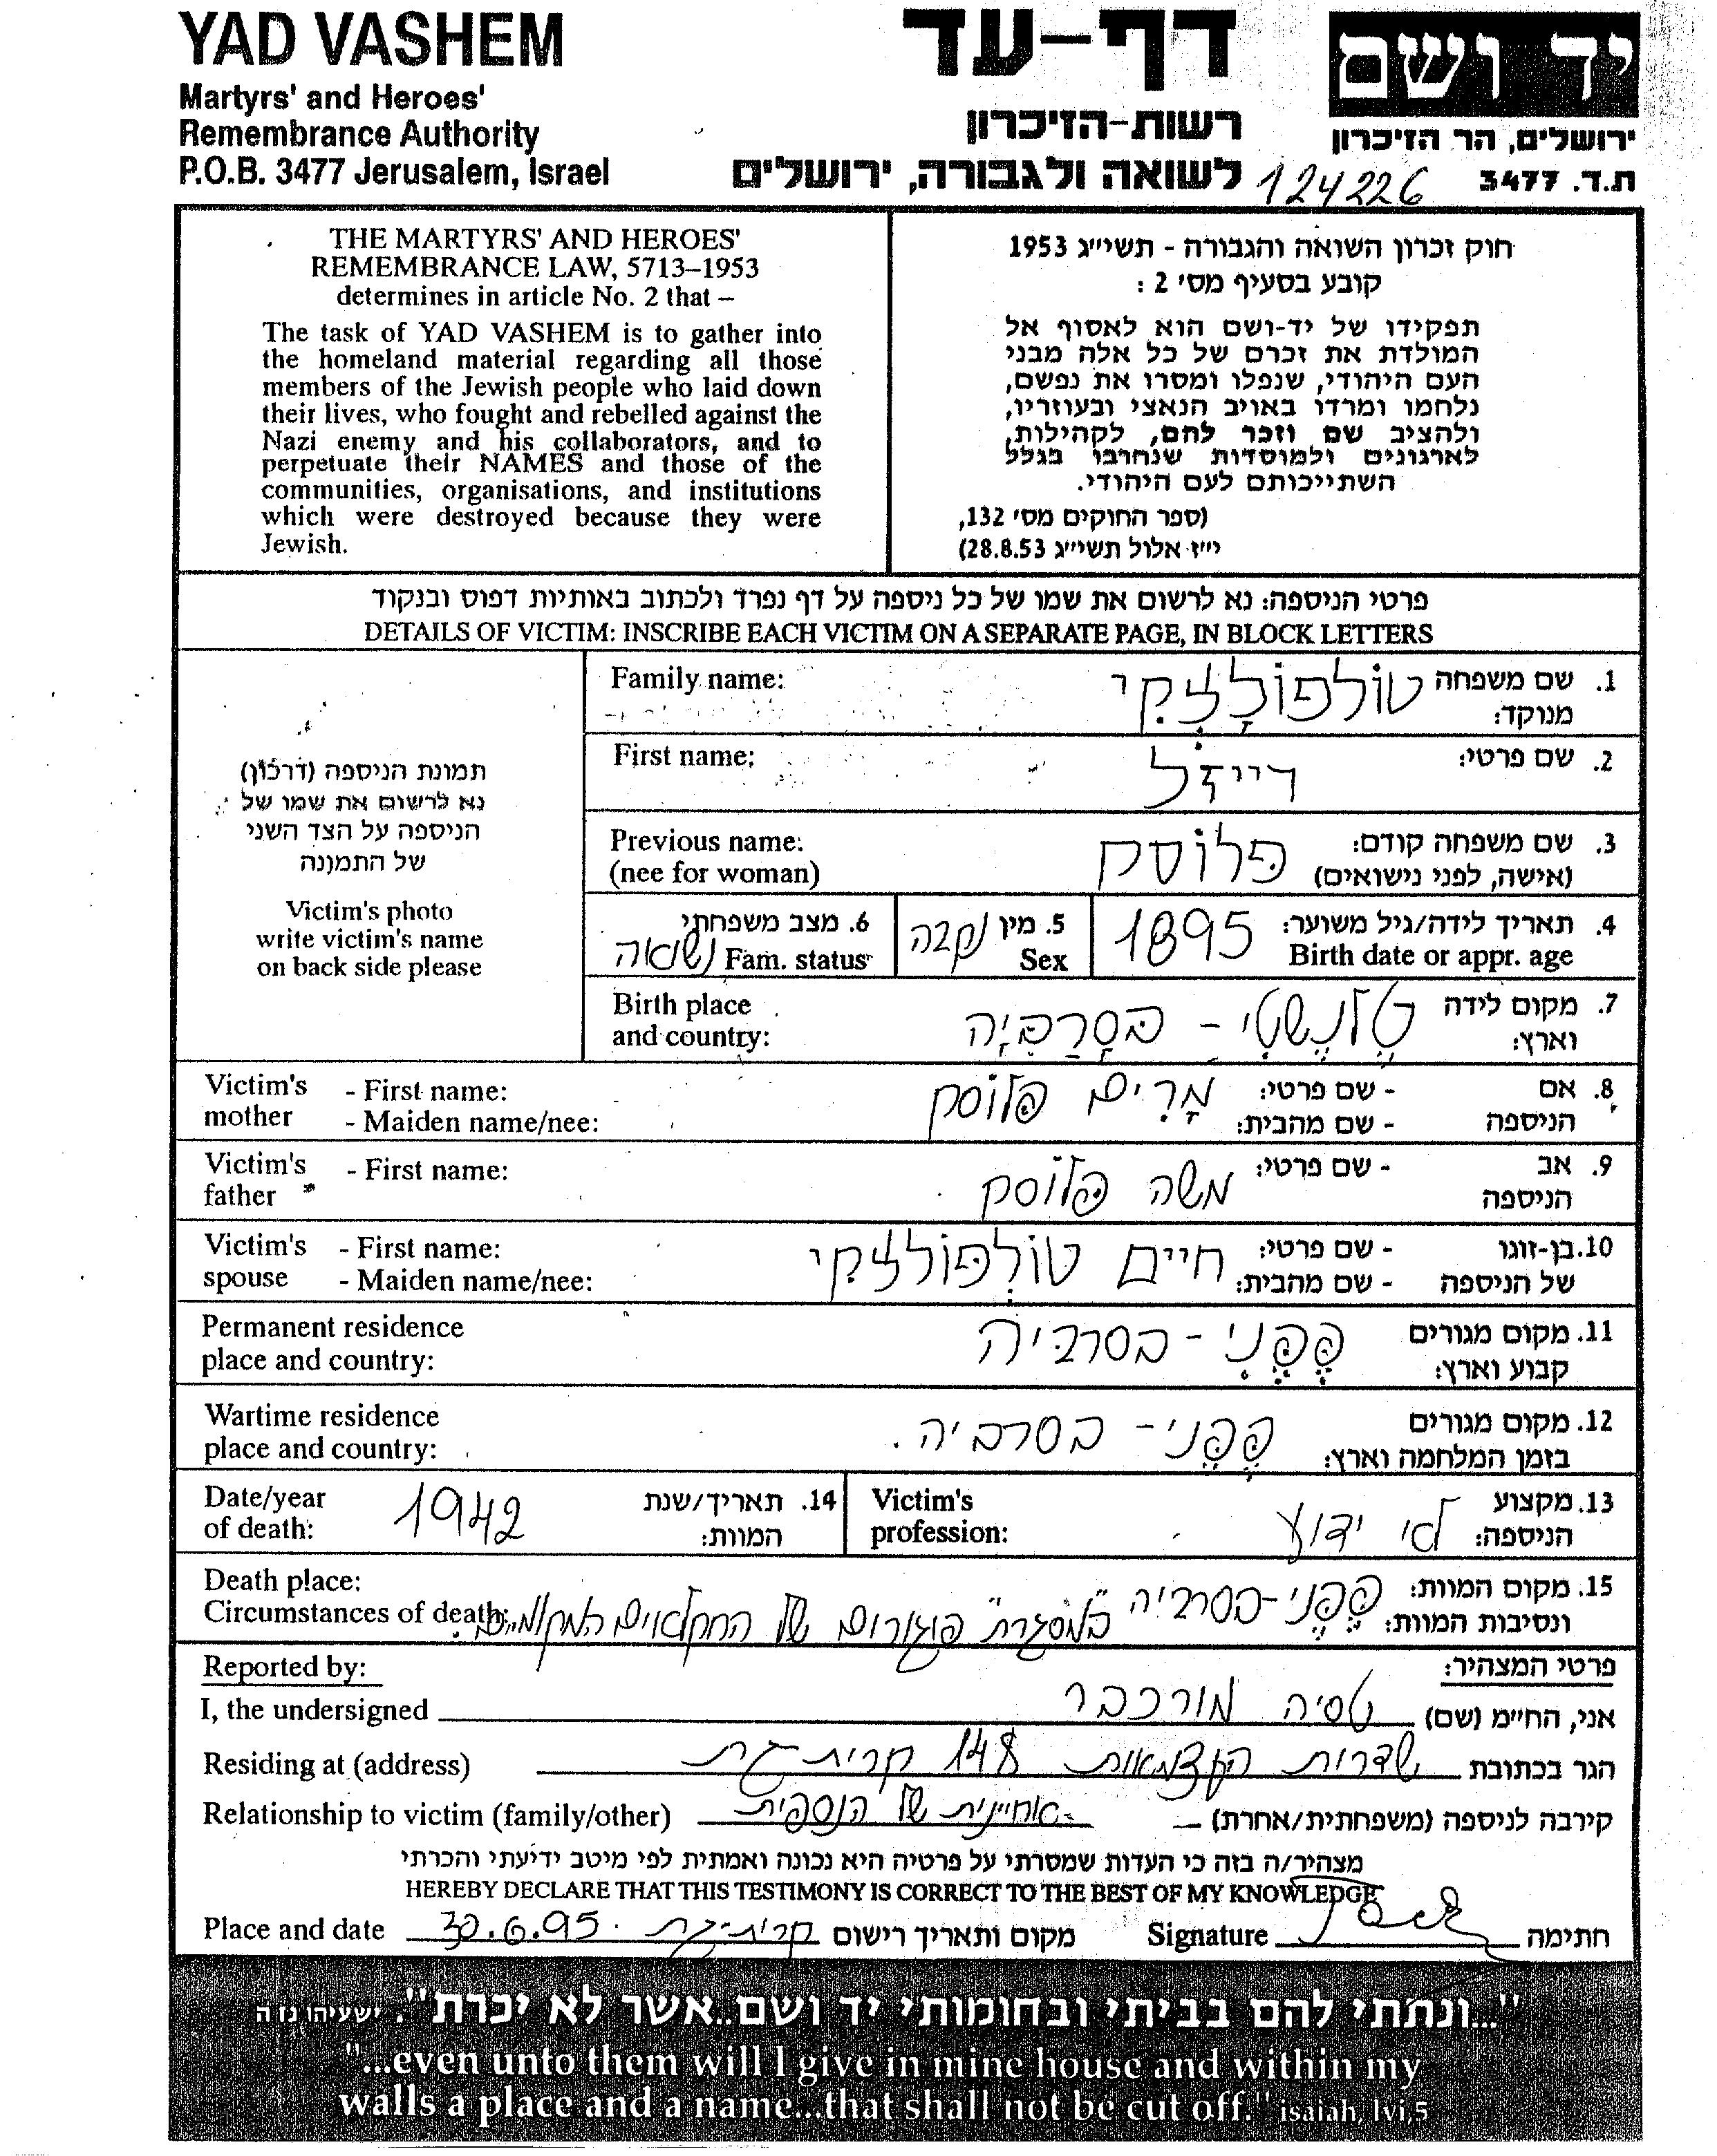 YAD VASHEM
Martyrs' and Heroes'
Remembrance Authority
P.O.B. 3477 Jerusalem, Israel
דף-עד
רשות-הזיכרון
לשואה ולגבורה, ירושלים
יד ושם
ירושלים, הר הזיכרון
ת.ד. 3477
124226
THE MARTYRS' AND HEROES'
REMEMBRANCE LAW, 5713–1953
determines in article No. 2 that –
The task of YAD VASHEM is to gather into
the homeland material regarding all those
members of the Jewish people who laid down
their lives, who fought and rebelled against the
Nazi enemy and his collaborators, and to
perpetuate their NAMES and those of the
communities, organisations, and institutions
which were destroyed because they were
Jewish.
חוק זכרון השואה והגבורה - תשי״ג 1953
קובע בסעיף מס׳ 2 :
תפקידו של יד-ושם הוא לאסוף אל
המולדת את זכרם של כל אלה מבני
העם היהודי, שנפלו ומסרו את נפשם,
נלחמו ומרדו באויב הנאצי ובעוזריו,
ולהציב שם וזכר להם, לקהילות,
לארגונים ולמוסדות שנחרבו בגלל
השתייכותם לעם היהודי.
(ספר החוקים מס׳ 132,
י״ז אלול תשי״ג 28.8.53)
פרטי הניספה: נא לרשום את שמו של כל ניספה על דף נפרד ולכתוב באותיות דפוס ובנקוד
DETAILS OF VICTIM: INSCRIBE EACH VICTIM ON A SEPARATE PAGE, IN BLOCK LETTERS
תמונת הניספה (דרכון)
נא לרשום את שמו של
הניספה על הצד השני
של התמונה
Victim's photo
write victim's name
on back side please
Family name:
1. שם משפחה
מנוקד:
טולפולצקי
First name:
2. שם פרטי:
רייזל
Previous name:
(nee for woman)
3. שם משפחה קודם:
(אישה, לפני נישואים)
פלוסק
4. תאריך לידה/גיל משוער:
Birth date or appr. age
1895
5. מין
Sex
נקבה
6. מצב משפחתי
Fam. status
נשואה
Birth place
and country:
7. מקום לידה
וארץ:
טלנשטי - בסרביה
Victim's mother
- First name:
- Maiden name/nee:
8. אם הניספה
- שם פרטי:
- שם מהבית:
מרים פלוסק
Victim's father
- First name:
9. אב הניספה
- שם פרטי:
משה פלוסק
Victim's spouse
- First name:
- Maiden name/nee:
10. בן-זוגו של הניספה
- שם פרטי:
- שם מהבית:
חיים טולפולצקי
Permanent residence
place and country:
11. מקום מגורים
קבוע וארץ:
פפני - בסרביה
Wartime residence
place and country:
12. מקום מגורים
בזמן המלחמה וארץ:
פפני - בסרביה.
13. מקצוע
הניספה:
Victim's
profession:
לא ידוע
Date/year
of death:
14. תאריך/שנת
המוות:
1942
Death place:
Circumstances of death:
15. מקום המוות:
ונסיבות המוות:
פפני - בסרביה "במסגרת" פוגרום של החקלאים המקומיים.
Reported by:
פרטי המצהיר:
I, the undersigned
אני, החי״מ (שם)
טסיה מורכבר
Residing at (address)
הגר בכתובת
שדרות העצמאות 148 קרית-גת
Relationship to victim (family/other)
קירבה לניספה (משפחתית/אחרת)
אחיינית של הנספית
מצהיר/ה בזה כי העדות שמסרתי על פרטיה היא נכונה ואמתית לפי מיטב ידיעתי והכרתי
HEREBY DECLARE THAT THIS TESTIMONY IS CORRECT TO THE BEST OF MY KNOWLEDGE
Place and date
מקום ותאריך רישום
קרית-גת 30.6.95
Signature
חתימה
"...ונתתי להם בביתי ובחומותי יד ושם..אשר לא יכרת". ישעיהו נו ה
"...even unto them will I give in mine house and within my
walls a place and a name...that shall not be cut off." isaiah, lvi,5